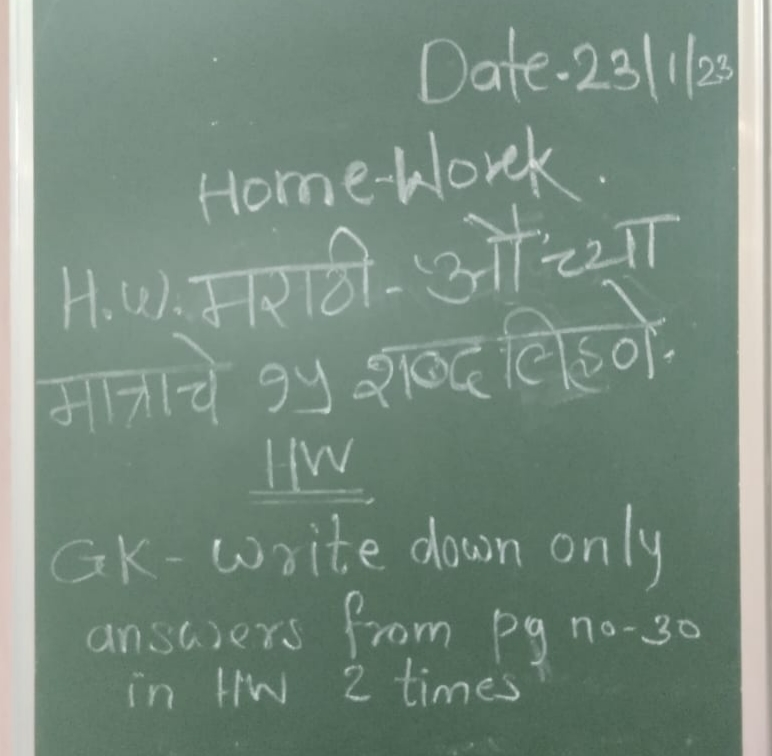 Date-23/1/23
Home-Work.
H.W. मराठी - 'ओ' च्या
मात्राचे १५ शब्द लिहणे.
HW
GK - Write down only
answers from pg no-30
in HW 2 times